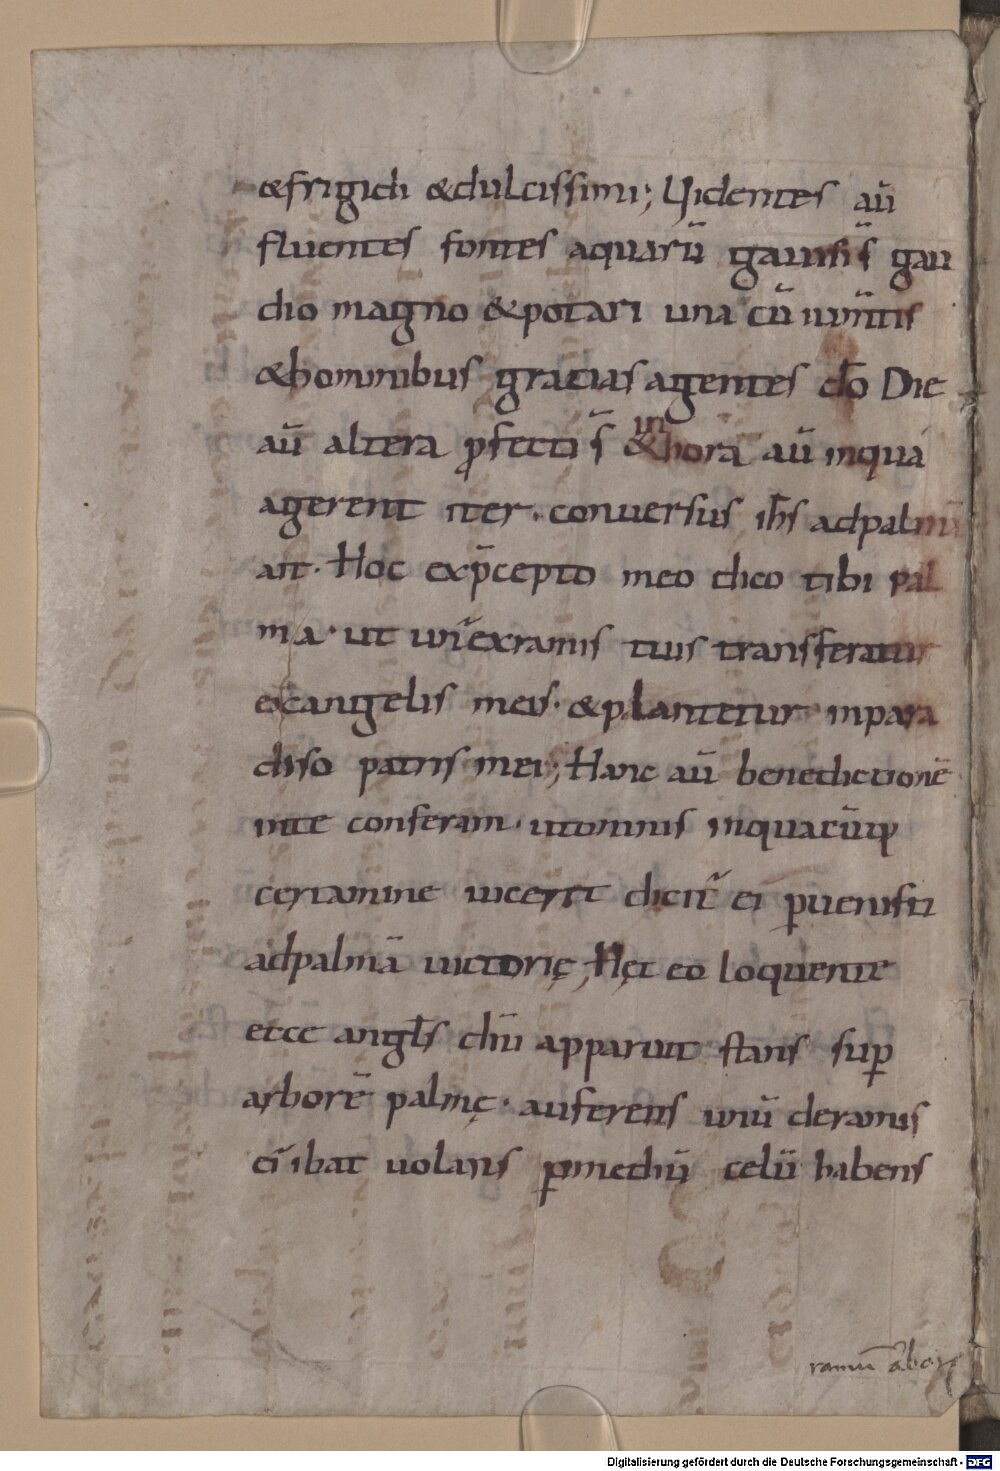 &frigidi &dulcissimi; Uidentes aū
fluentes fontes aquarū gauisi s̄ gau
dio magno &potati una cū ium̄tis
&hominibus gracias agentes dō Die
aū altera ꝓfecti s̄ &in hora aū inqua
agerent iter. conuersus ih̄s adpalmā
ait. Hoc exp̄cepto meo dico tibi pal
ma. ut un̄ exramis tuis transferatur
excangelis meis. &plantetur inpara
diso patris mei; Hanc aū benedictionē
inte conferam. utomnis inquacūq;
certamine uicerit dicit̄ ei ꝑuenisti
adpalmā uictorię; Hęc eo loquente
ecce angl̄s dn̄i apparuit stans suꝑ
arborē palmę. auferens unū deramis
ei ibat uolans ꝑmediū celū habens
ramū